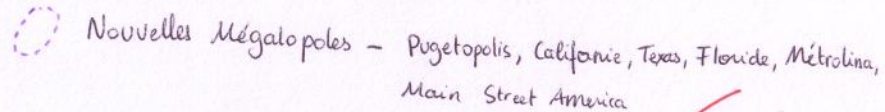 Nouvelles Mégalopoles – Pugetopolis, Califonie, Texas, Floride, Métrolina,
Main Street America